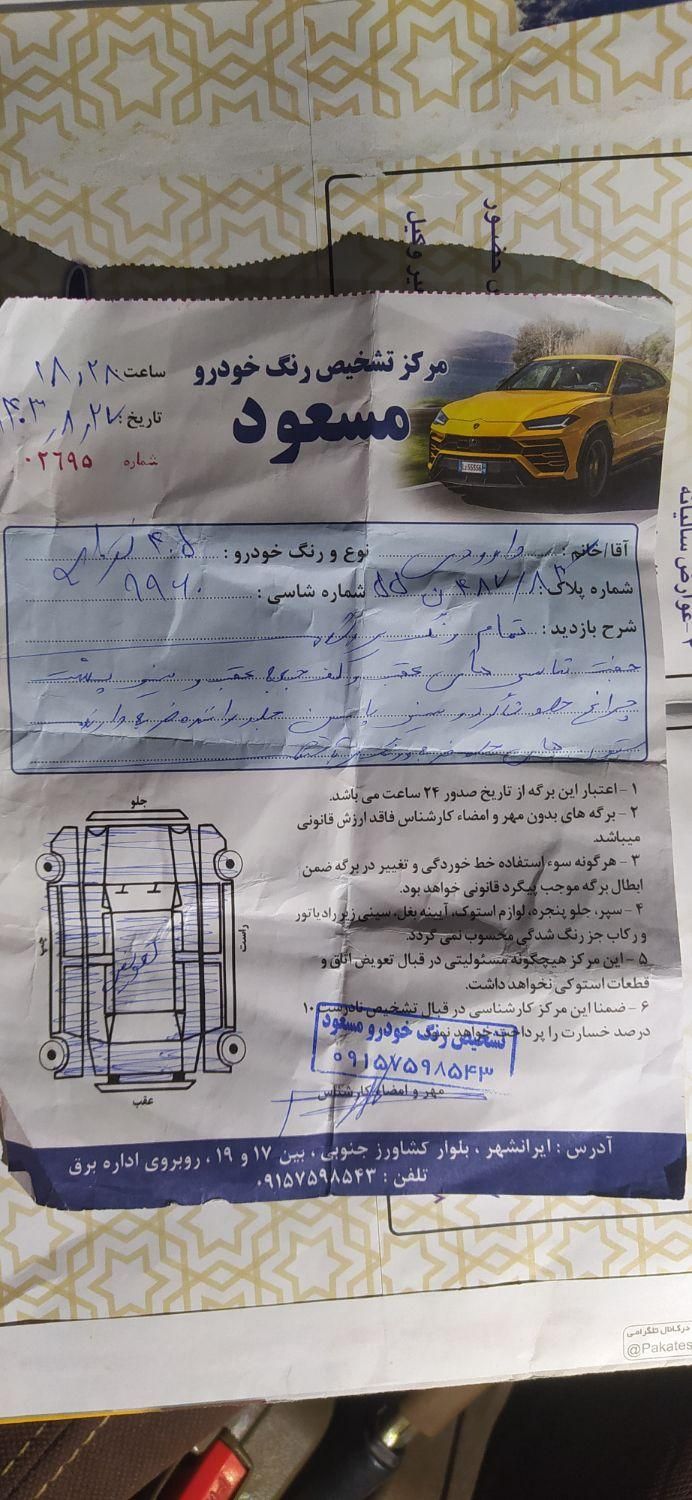 حضور
وکیل
مرکز تشخیص رنگ خودرو
مسعود
ساعت: ۱۸,۲۸
تاریخ: ۱۴۰۳,۸,۲۷
شماره ۰۲۶۹۵
آقا/خانم: نوع و رنگ خودرو: ۴۰۵
شماره پلاک: شماره شاسی: ۹۹۶۰
شرح بازدید: تمام رنگ
جفت شاسی های عقب و کف صندوق عقب و سینی پشت
چراغ
۱ - اعتبار این برگه از تاریخ صدور ۲۴ ساعت می باشد.
۲ - برگه های بدون مهر و امضاء کارشناس فاقد ارزش قانونی
میباشد.
۳ - هرگونه سوء استفاده خط خوردگی و تغییر در برگه ضمن
ابطال برگه موجب پیگرد قانونی خواهد بود.
۴ - سپر، جلو پنجره، لوازم استوک، آیینه بغل، سینی زیر رادیاتور
و رکاب جز رنگ شدگی محسوب نمی گردد.
۵ - این مرکز هیچگونه مسئولیتی در قبال تعویض اتاق و
قطعات استوکی نخواهد داشت.
۶ - ضمنا این مرکز کارشناسی در قبال تشخیص نادرست ۱۰
درصد خسارت را پرداخت خواهد نمود.
جلو
راست
چپ
عقب
تشخیص رنگ خودرو مسعود
۰۹۱۵۷۵۹۸۵۴۳
مهر و امضاء کارشناس
آدرس : ایرانشهر ، بلوار کشاورز جنوبی ، بین ۱۷ و ۱۹ ، روبروی اداره برق
تلفن : ۰۹۱۵۷۵۹۸۵۴۳
۲-عوارض سالیانه
درکانال تلگرامی
@Pakates